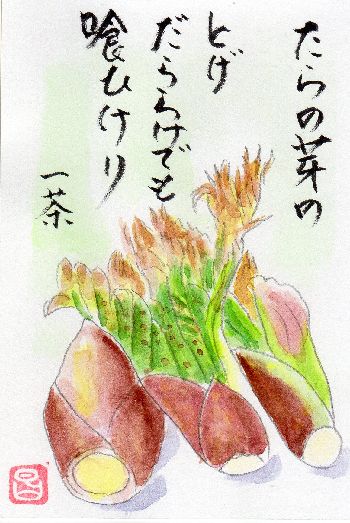 たらの芽の
とげ
だららけでも
喰ひけり
一茶